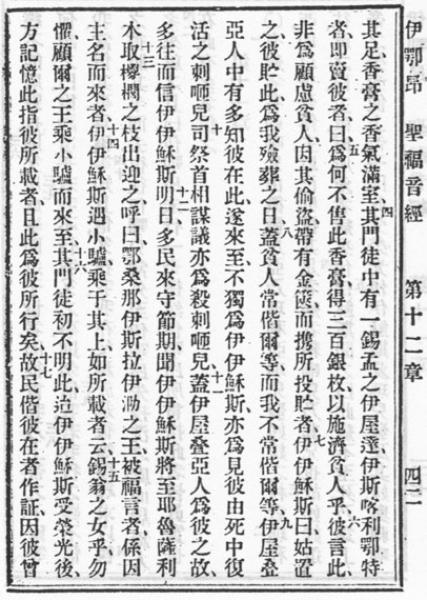 伊鄂昂 聖福音經 第十二章 四二
其足香膏之香氣滿室四其門徒中有一錫孟之伊屋達伊斯喀利鄂特
者即賣彼者曰五爲何不售此香膏得三百銀枚以施濟貧人乎六彼言此
非爲顧慮貧人因其偷盜帶有金篋而攜所投貯者七伊伊穌斯曰姑置
之彼貯此爲我殮葬之日八蓋貧人常偕爾等而我不常偕爾等九伊屋叠
亞人中有多知彼在此遂來至不獨爲伊伊穌斯亦爲見彼由死中復
活之剌咂兒十司祭首相謀議亦爲殺剌咂兒十一蓋伊屋叠亞人爲彼之故
多往而信伊伊穌斯十二明日多民來守節期聞伊伊穌斯將至耶魯薩利
木十三取椶櫚之枝出迎之呼曰鄂桑那伊斯拉伊泐之王被福言者係因
主名而來者十四伊伊穌斯遇小驢乘于其上如所載者云十五錫翁之女乎勿
懼顧爾之王乘小驢而來至十六其門徒初不明此迨伊伊穌斯受榮光後
方記憶此指彼所載者且此爲彼所行矣十七故民偕彼在者作証因彼曾